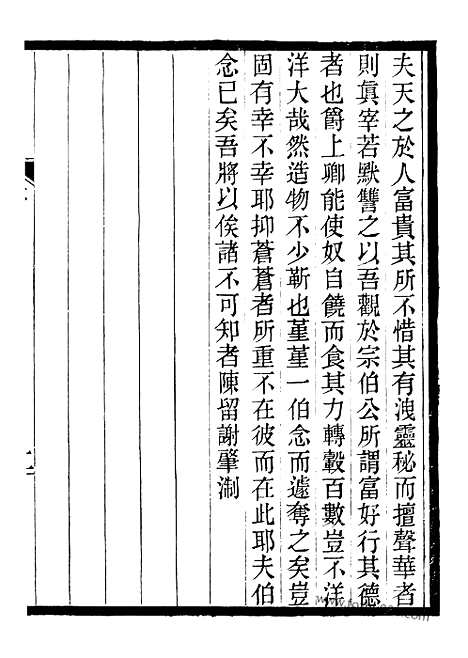 夫天之於人富貴其所不惜其有洩靈秘而擅聲華者
則眞宰若默讐之以吾觀於宗伯公所謂富好行其德
者也爵上卿能使奴自饒而食其力轉轂百數豈不洋
洋大哉然造物不少靳也堇堇一伯念而遽奪之矣豈
固有幸不幸耶抑蒼蒼者所重不在彼而在此耶夫伯
念已矣吾將以俟諸不可知者陳留謝肇淛